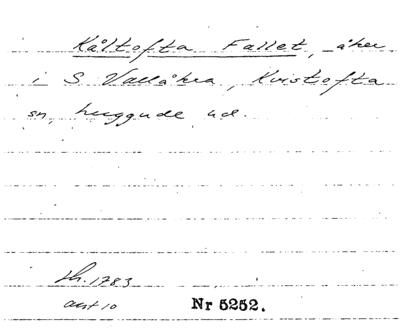 Kåltofta Fallet, åker
i S Vallåkra, Kvistofta
sn, luggude hd.
sk. 1783
akt 10
Nr 5252.